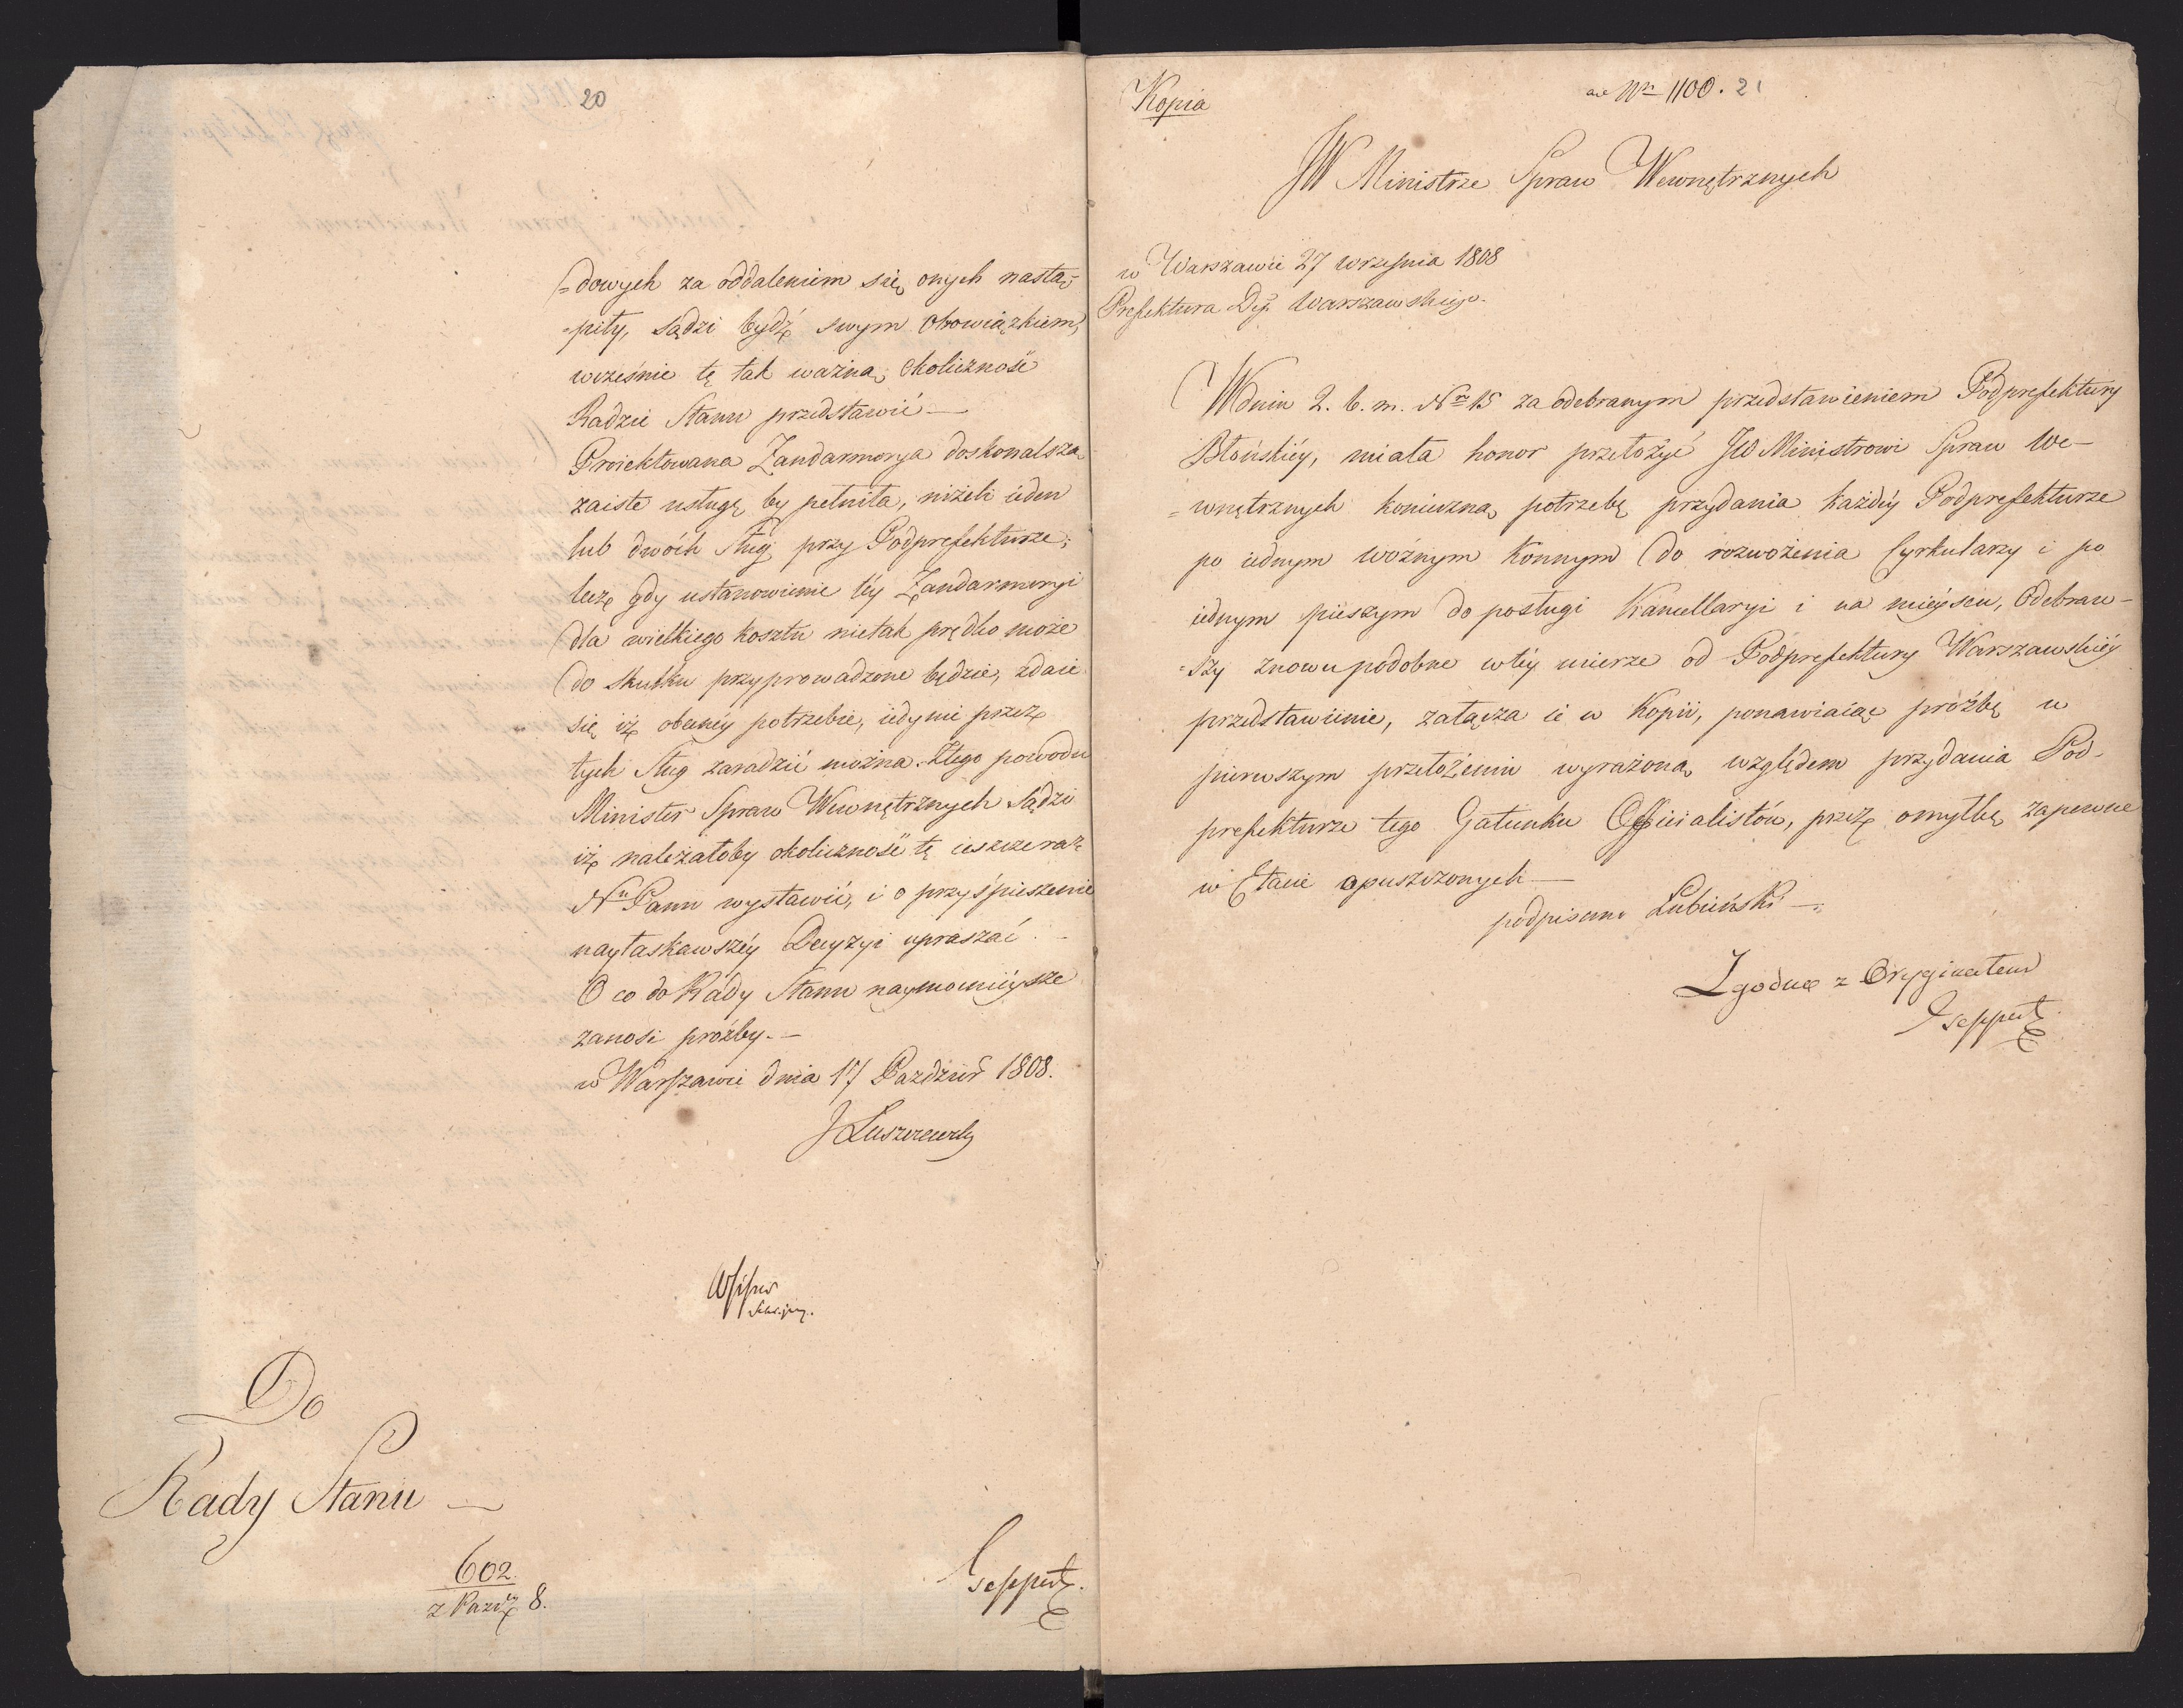 20
=dowych za oddaleniem się onych nastą=
=piły, sądzi bydź swym obowiązkiem,
wcześnie tę tak ważną okoliczność
Radzie Stanu przedstawić —
Proiektowana Żandarmerya doskonalszą
zaiste usługę by pełniła, niżeli ieden
lub dwóch sług przy Podprefekturze;
lecz gdy ustanowienie téy Żandarmeryi
dla wielkiego kosztu nietak prędko może
do skutku przyprowadzone będzie, zdaie
się iż obecnéy potrzebie, iedynie przez
tych sług zaradzić można. Ztego powodu
Minister Spraw Wewnętrznych sądzi
iż należałoby okoliczność tę ieszcze raz
Nu Panu wystawić, i o przyśpieszenie
nayłaskawszéy Decyzyi upraszać —
O co do Rady Stanu naymocniéysze
zanosi prożby. —
w Warszawie dnia 17 Pazdzier 1808.
J Łuszczewsky
Do
Rady Stanu —
602.
z Pazdz 8.
Geppert.
Kopia
ad Nr 1100. 21
JW Ministrze Spraw Wewnętrznych
w Warszawie 27 września 1808
Prefektura Dep. Warszawskiego.
W dniu 2. b. m. Nro 15 za odebranym przedstawieniem Podprefektury
Błońskiéy, miała honor przełożyć JW Ministrowi Spraw We-
=wnętrznych konieczną potrzebę przydania każdéy Podprefekturze
po iednym woźnym konnym do rozwożenia Cyrkularzy i po
iednym pieszym do posługi Kancellaryi i na mieyscu, Odebraw-
=szy znowu podobne w téy mierze od Podprefektury Warszawskiéy
przedstawienie, załącza ie w Kopii, ponawiaiąc prożbę w
pierwszym przełożeniu wyrażoną względem przydania Pod-
prefekturze tego Gatunku Officialistów, przez omyłkę zapewne
w Etacie opuszczonych —
podpisano Łubieński —
Zgodno z Oryginałem
Geppert